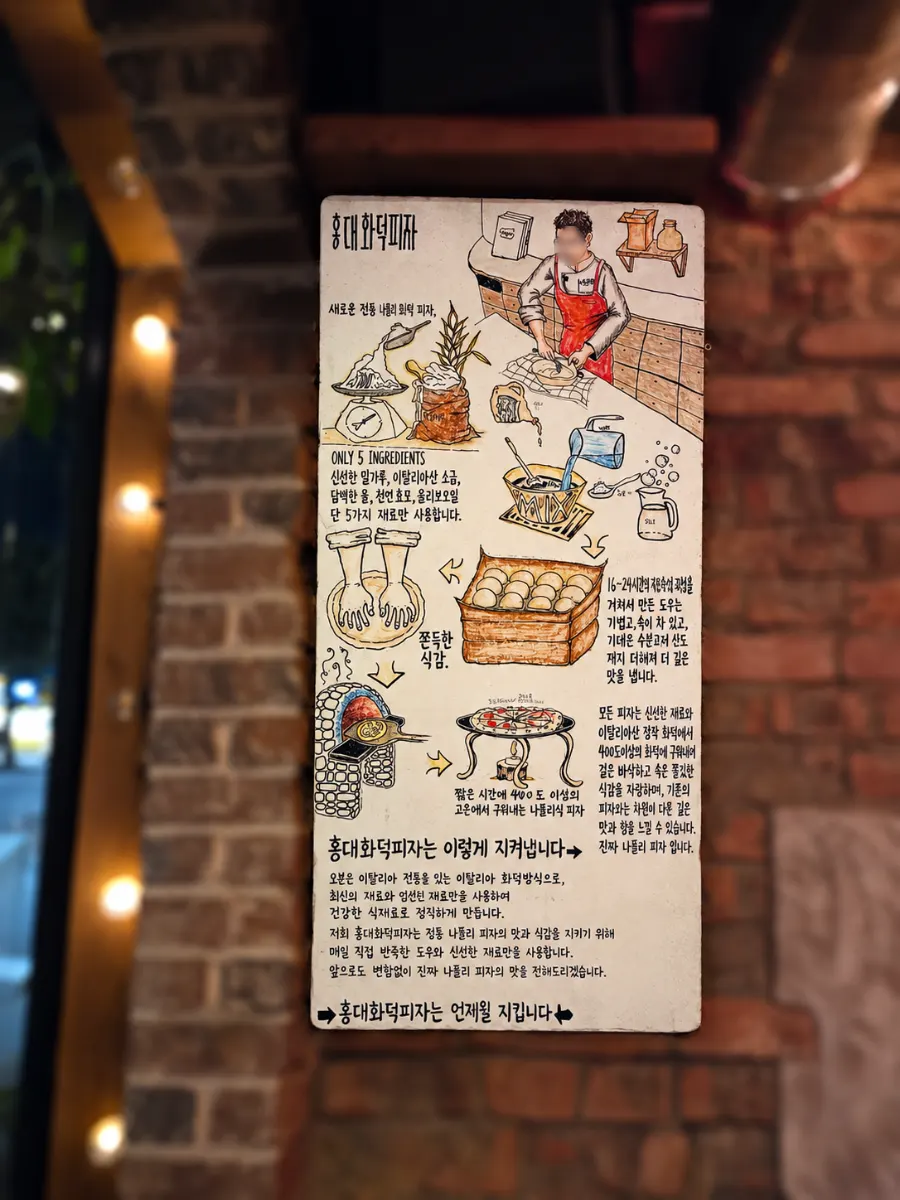 홍대화덕피자
새로운 전통 나폴리 화덕 피자,
ONLY 5 INGREDIENTS
신선한 밀가루, 이탈리아산 소금,
담백한 물, 천연효모, 올리보오일
단 5가지 재료만 사용합니다.
MIX
16~24시간의
거쳐서 만든 도우는
기볍고, 속이 차 있고,
기대은 수분고저 산도
재지 더해져 더 깊은
맛을 냅니다.
쫀득한
식감.
모든 피자는 신선한 재료와
이탈리아산 장작 화덕에서
400도이상의 화덕에 구워내어
겉은 바삭하고 속은 쫄깃한
식감을 자랑하며, 기존의
피자와는 차원이 다른 깊은
맛과 향을 느낄 수 있습니다.
진짜 나폴리 피자 입니다.
짧은 시간에 400도 이상의
고온에서 구워내는 나폴리식 피자
홍대화덕피자는 이렇게 지켜냅니다→
오븐은 이탈리아 전통을 있는 이탈리아 화덕방식으로,
최신의 재료와 엄선된 재료만을 사용하여
건강한 식재료로 정직하게 만듭니다.
저희 홍대화덕피자는 정통 나폴리 피자의 맛과 식감을 지키기 위해
매일 직접 반죽한 도우와 신선한 재료만을 사용합니다.
앞으로도 변함없이 진짜 나폴리 피자의 맛을 전해드리겠습니다.
→홍대화덕피자는 언제월 지킵니다←